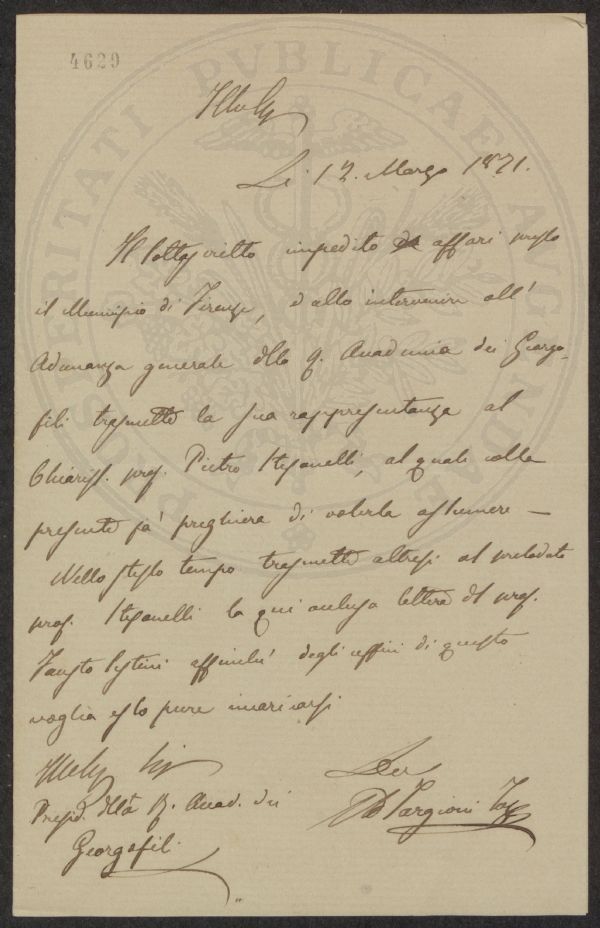 4629
Li 12. Marzo 1871.
Il sottoscritto impedito da affari presso
il Municipio di Firenze, dallo intervenire all'
Adunanza generale della R. Accademia dei Georgo-
fili trasmette la sua rappresentanza al
Chiariss. prof. Pietro Stefanelli, al quale colla
presente fa' preghiera di volerla assumere —
Nello stesso tempo trasmette altresi al prelodato
prof. Stefanelli la qui acclusa lettera del prof.
Fausto Sestini affinché degli uffici di questo
voglia esso pure incaricarsi
Presid. della R. Accad. dei
Georgofili.
Targioni
PROSPERITATI PUBLICAE AUGENDAE